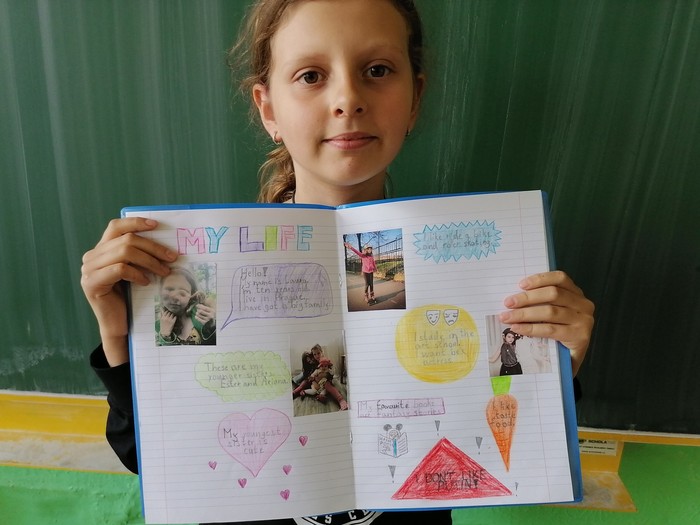 MY LIFE
Hello!
My name is
I'm ten years old.
I live in Prague.
I have got a big family.
These are my
younger sisters
Ester and Ariana.
My youngest
sister is
cute
I like ride a bike
and rollerskating.
I study in the
art stage.
I want be
actress.
My favourite books
are fantasy stories.
I like
eat
food.
I DON'T LIKE